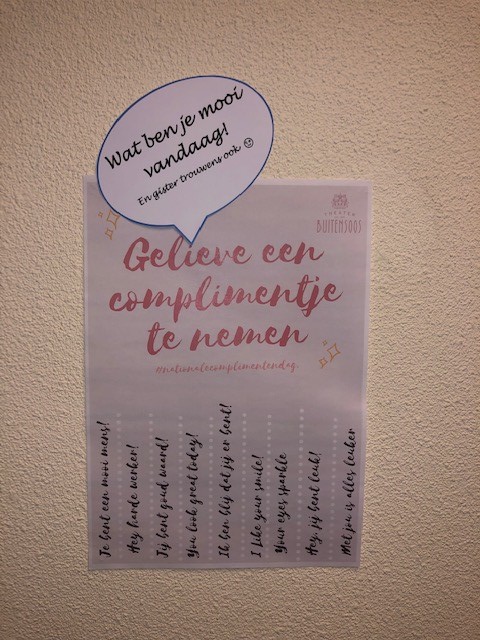 Wat ben je mooi
vandaag!
En gister trouwens ook ☺
THEATER
BUITENSOOS
Gelieve een
complimentje
te nemen
#nationalecomplimentendag
Je bent een mooi mens!
Hey harde werker!
Jij bent goud waard!
You look great today!
Ik ben blij dat jij er bent!
I like your smile!
Your eyes sparkle
Hey, jij bent leuk!
Met jou is alles leuker